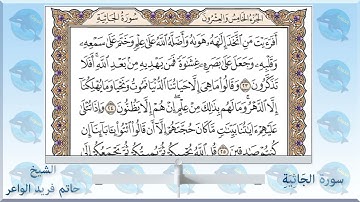 الجزء الخامس والعشرون
سورة الجاثية
أَفَرَءَيْتَ مَنِ ٱتَّخَذَ إِلَٰهَهُۥ هَوَىٰهُ وَأَضَلَّهُ ٱللَّهُ عَلَىٰ عِلْمٍ وَخَتَمَ عَلَىٰ سَمْعِهِۦ
وَقَلْبِهِۦ وَجَعَلَ عَلَىٰ بَصَرِهِۦ غِشَٰوَةً فَمَن يَهْدِيهِ مِنۢ بَعْدِ ٱللَّهِ أَفَلَا
تَذَكَّرُونَ ٢٣ وَقَالُوا۟ مَا هِىَ إِلَّا حَيَاتُنَا ٱلدُّنْيَا نَمُوتُ وَنَحْيَا وَمَا يُهْلِكُنَآ
إِلَّا ٱلدَّهْرُ وَمَا لَهُم بِذَٰلِكَ مِنْ عِلْمٍ إِنْ هُمْ إِلَّا يَظُنُّونَ ٢٤ وَإِذَا تُتْلَىٰ
عَلَيْهِمْ ءَايَٰتُنَا بَيِّنَٰتٍ مَّا كَانَ حُجَّتَهُمْ إِلَّآ أَن قَالُوا۟ ٱئْتُوا۟ بِـَٔابَآئِنَآ إِن
كُنتُمْ صَٰدِقِينَ ٢٥ قُلِ ٱللَّهُ يُحْيِيكُمْ ثُمَّ يُمِيتُكُمْ ثُمَّ يَجْمَعُكُمْ إِلَىٰ
الشيخ
حاتم فريد الواعر
سورة الجَاثِيَةِ